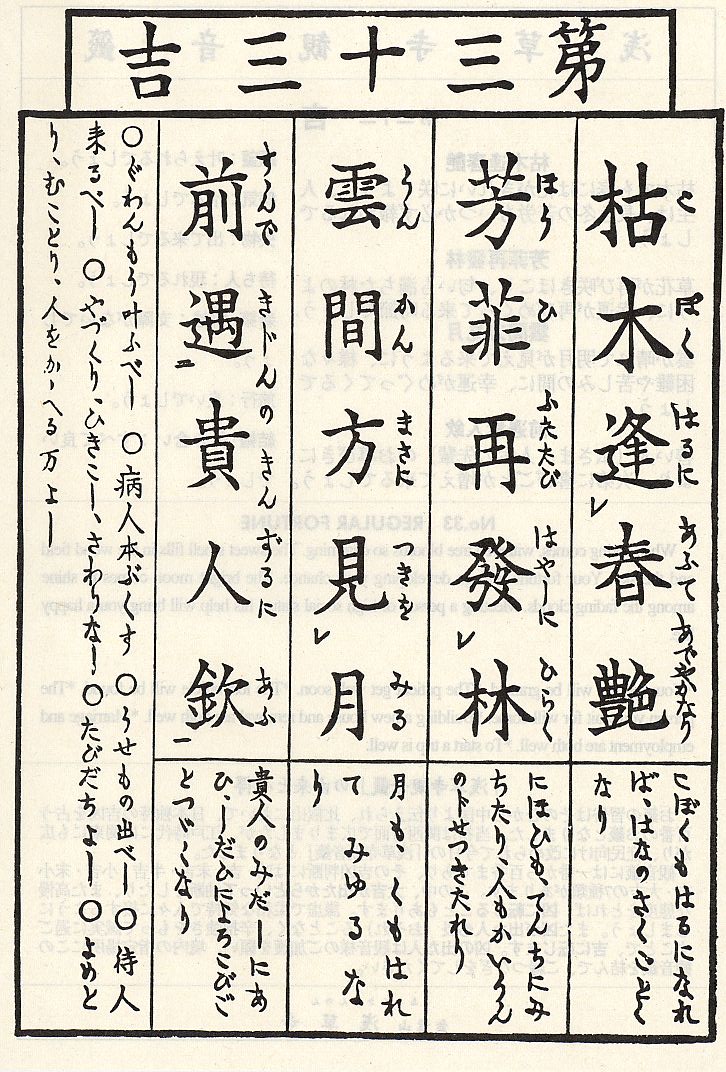 第三十三吉
こ ぼく はるに あふて あでやかなり
枯木逢レ春艶
こぼくもはるになれ
ばはなのさくごとく
なり
ほう ひ ふたたび はやしに ひらく
芳菲再發レ林
にほひもてんちにみ
ちたり、人もかいうん
の下せつきたれり
うん かん まさに つきを みる
雲間方見レ月
月しも、くもはれ
てみゆるな
り
すんで きじんのきんずるに あふ
前遇二貴人欽一
貴人のみだしにあ
ひしだひによろこびご
とつづくなり
○ぐわんもう叶ふべし ○病人本ぶくす ○うせもの出べし ○待人
来るべし ○やづくり、ひきこし、さわりなし ○たびだちよし ○よめと
り、むことり、人をかゝへる万よし